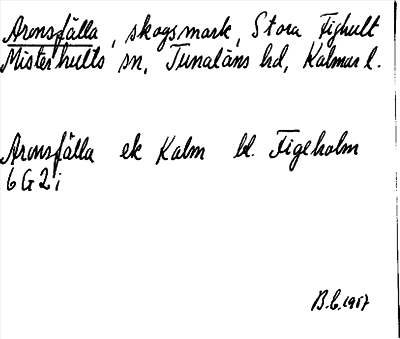 Aronsfälla, skogsmark, Stora Fighult
Misterhults sn, Tunaläns hd, Kalmar l.
Aronsfälla ek Kalm bl. Figeholm
6G2i
B.E. 1957